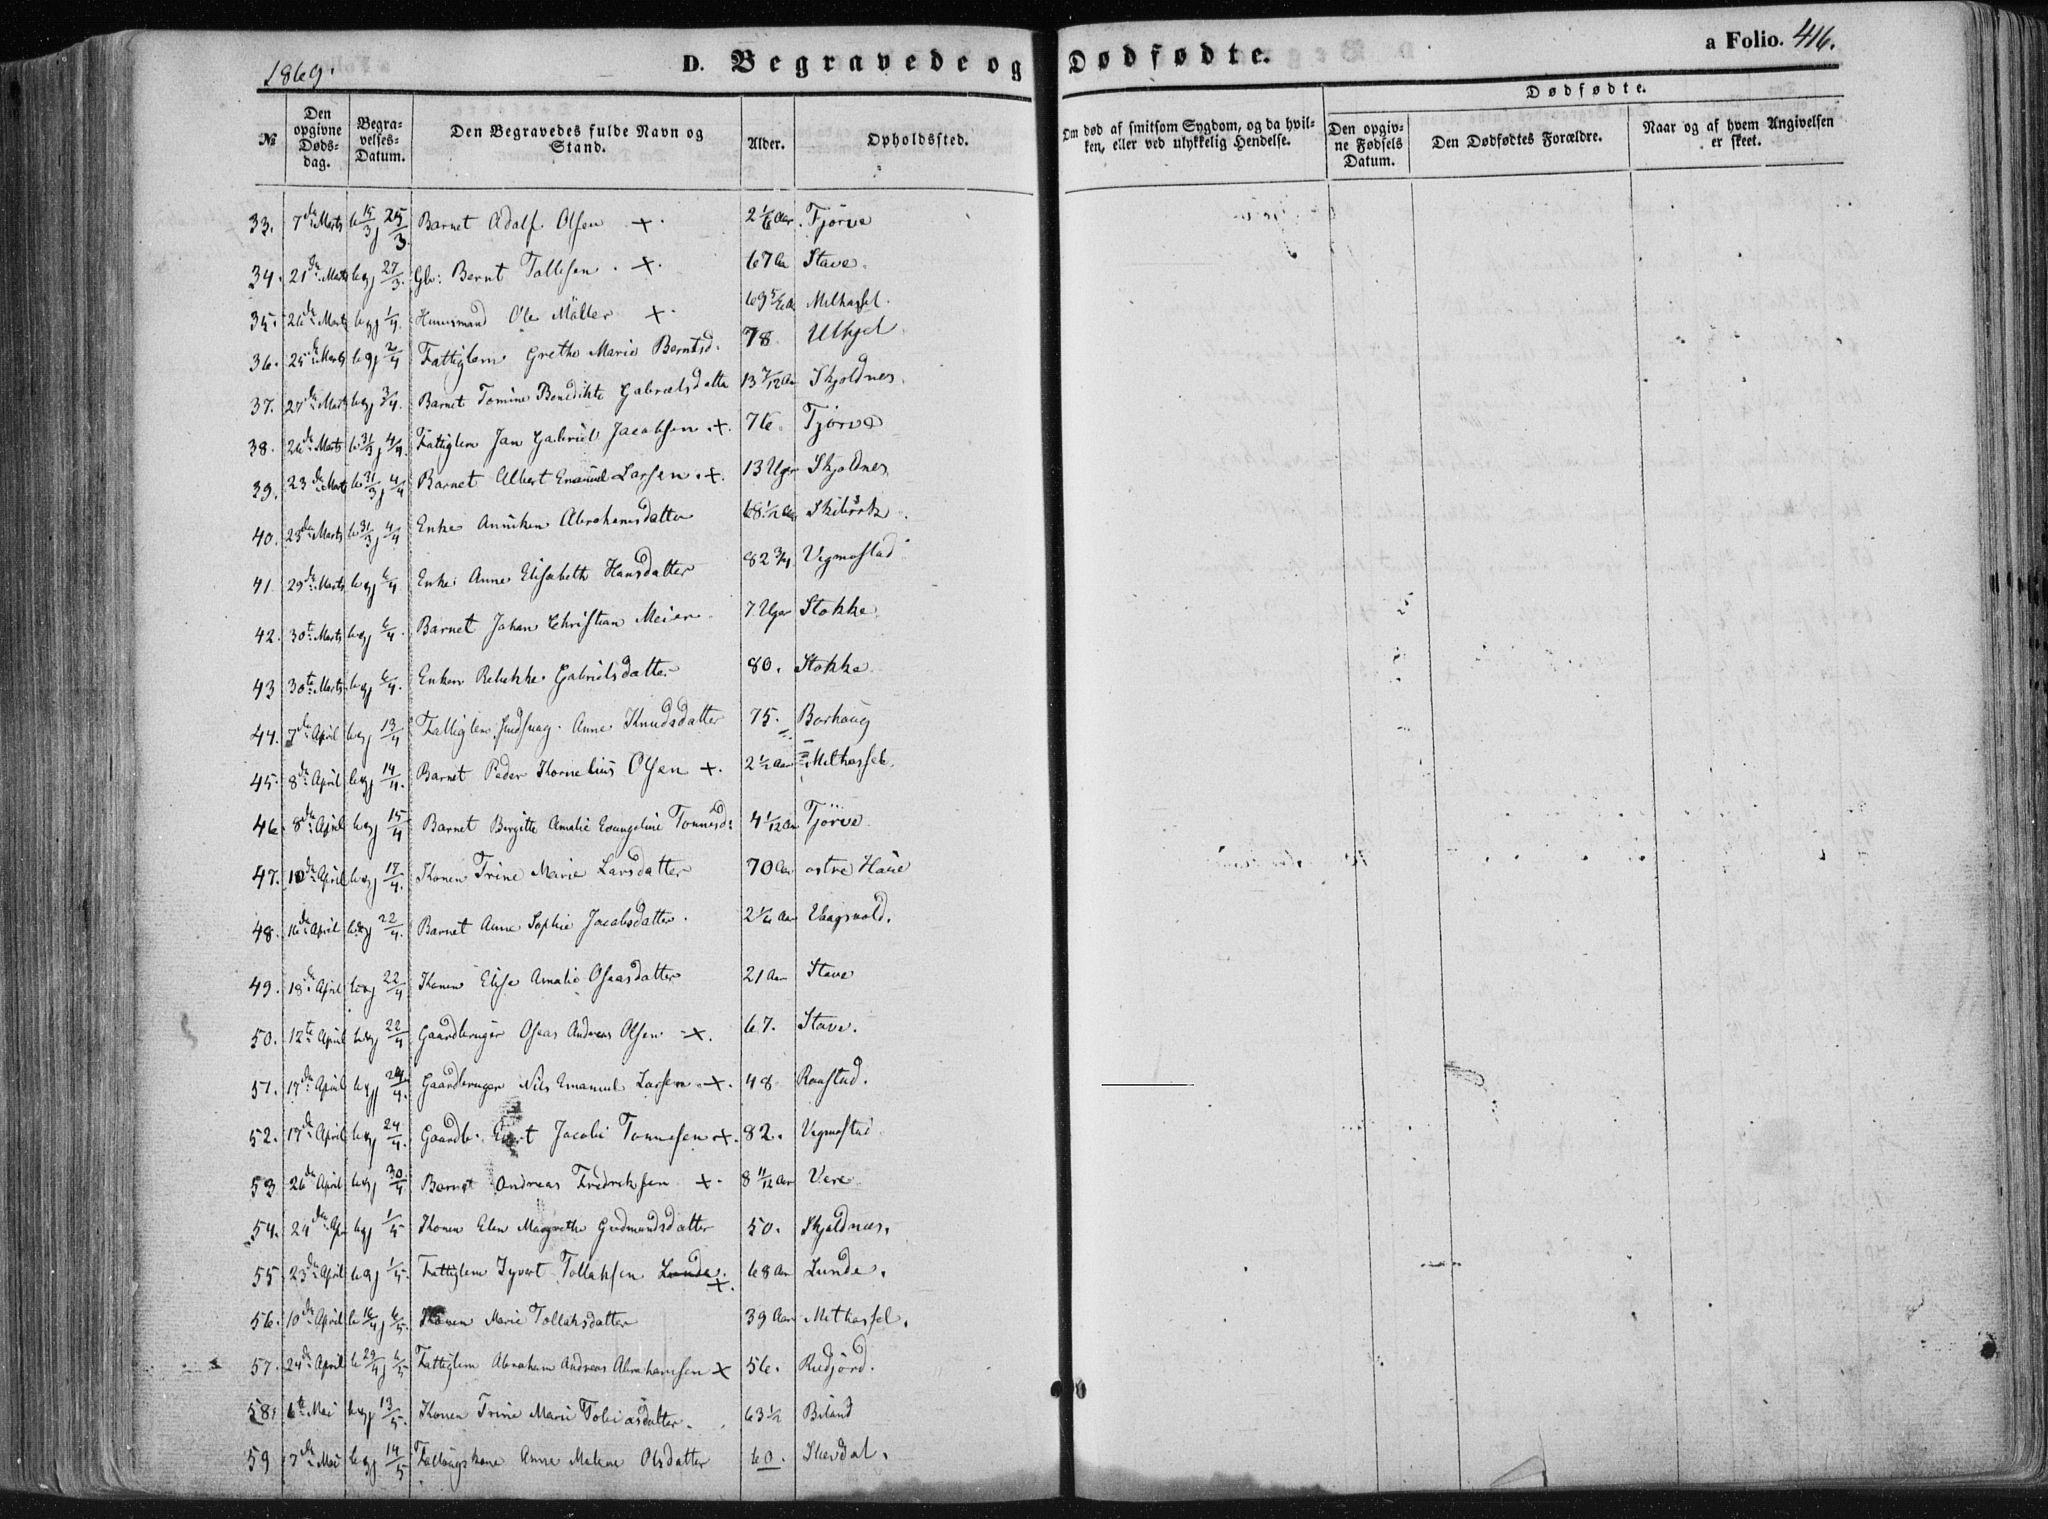 1869.
D. Begravede og Dødfødte.
a Folio. 416.
№
Den opgivne Døds-dag.
Begra-velses-Datum.
Den Begravedes fulde Navn og Stand.
Alder.
Opholdssted.
Om død af smitsom Sygdom, og da hvil-ken, eller ved ulykkelig Hendelse.
Dødfødte.
Den opgiv-ne Fødsels Datum.
Den Dødfødtes Forældre.
Naar og af hvem Angivelsen er skeet.
33. 7de Marts 15/3 25/3 Barnet Adolf Olsen + 2 1/6 Aar. Tjørve
34. 21de Marts beg 27/3. Gbr: Bernt Tollefsen + 67 Aa Stave.
35. 26de Marts beg 1/4 Huusmand Ole Möller + Methassel.
36. 25de Marts beg 2/4 Fattiglem Grethe Marie Berntsd. 78
37. 27de Marts beg 3/4. Barnet Tomine Benedikte Gabrielsdatter 13 7/12 Aar Skjoldnes.
38. 26de Marts b 31/3 j 4/4. Fattiglem Jan Gabriel Jacobsen + 76. Tjørve
39. 23de Marts b 31/3 j 4/4 Barnet Albert Emanuel Larsen + 13 Uger Skjoldnes
40. 23de Marts b 31/3 j 4/4 Enke Anniken Abrahamsdatter 68 1/2 Aar
41. 29de Marts beg 6/4. Enke Anne Elisabeth Hansdatter 82 3/4 Vegmostad
42. 30te Marts beg 6/4. Barnet Johan Christian Meier 7 Uger Stokke.
43 30te Marts beg 6/4. Enken Rebekke Gabrielsdatter 80. Stokke
44. 7de April beg 13/4 Fattiglem Anne Knudsdatter 75. Borhaug
45. 8de April beg 14/4. Barnet Peder Kornelius Olsen + 2 1/2 Aar Methassel.
46. 8de April beg 15/4 Barnet Birgitte Amalie Evangeline Tønnesd: 4 1/12 Aar Tjørve
47. 10de April beg 17/4. Konen Trine Marie Larsdatter 70 Aar østre Haue
48. 16de April beg 22/4. Barnet Anne Sophie Jacobsdatter. 2 1/4 Aar Vaagsvold.
49. 18de April beg 22/4 Konen Elise Amalie Oseasdatter 21 Aar Stave
50. 12te April beg 22/4 Gaardbruger Oseas Andreas Olsen + 67. Stave.
51. 17de April beg 24/4. Gaardbruger Nils Emanuel Larsen + 48 Raastad.
52. 17de April beg 24/4. Gaardb. Jacob Tønnesen + 82. Vegmostad
53 26de April beg 30/4 Barnet Andreas Fredriksen + 8 11/12 Aar Vere
54. 24de Apr beg 1/5 Konen Elen Magrethe Gudmundsdatter 50. Skjoldnæs.
55 23de April beg 1/5. Fattiglem Syvert Tollaksen Lunde + 68 Aar Lunde.
56. 10de April b 16/4 j 6/5. Konen Marie Tollaksdatter 39 Aar Methassel.
57. 24de April b 29/4 j 6/5 Fattiglem Abraham Andreas Abrahamsen + 56. Rudjord.
58. 6te Mai beg 13/5. Konen Trine Marie Tobiasdatter. 63 1/2 Briland
59 7de Mai beg 14/5 Anne Malene Olsdatter 60.